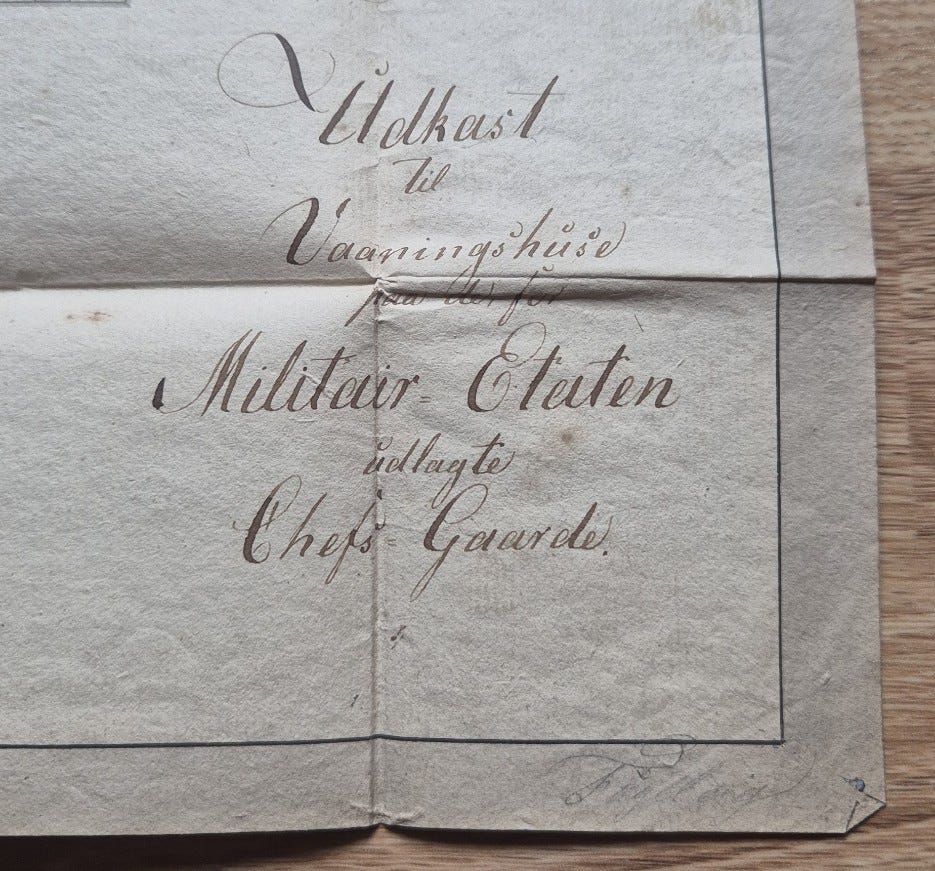 Udkast
til
Vaaningshuse
paa der for
Militair= Etaten
udlagte
Chefs= Gaarde.